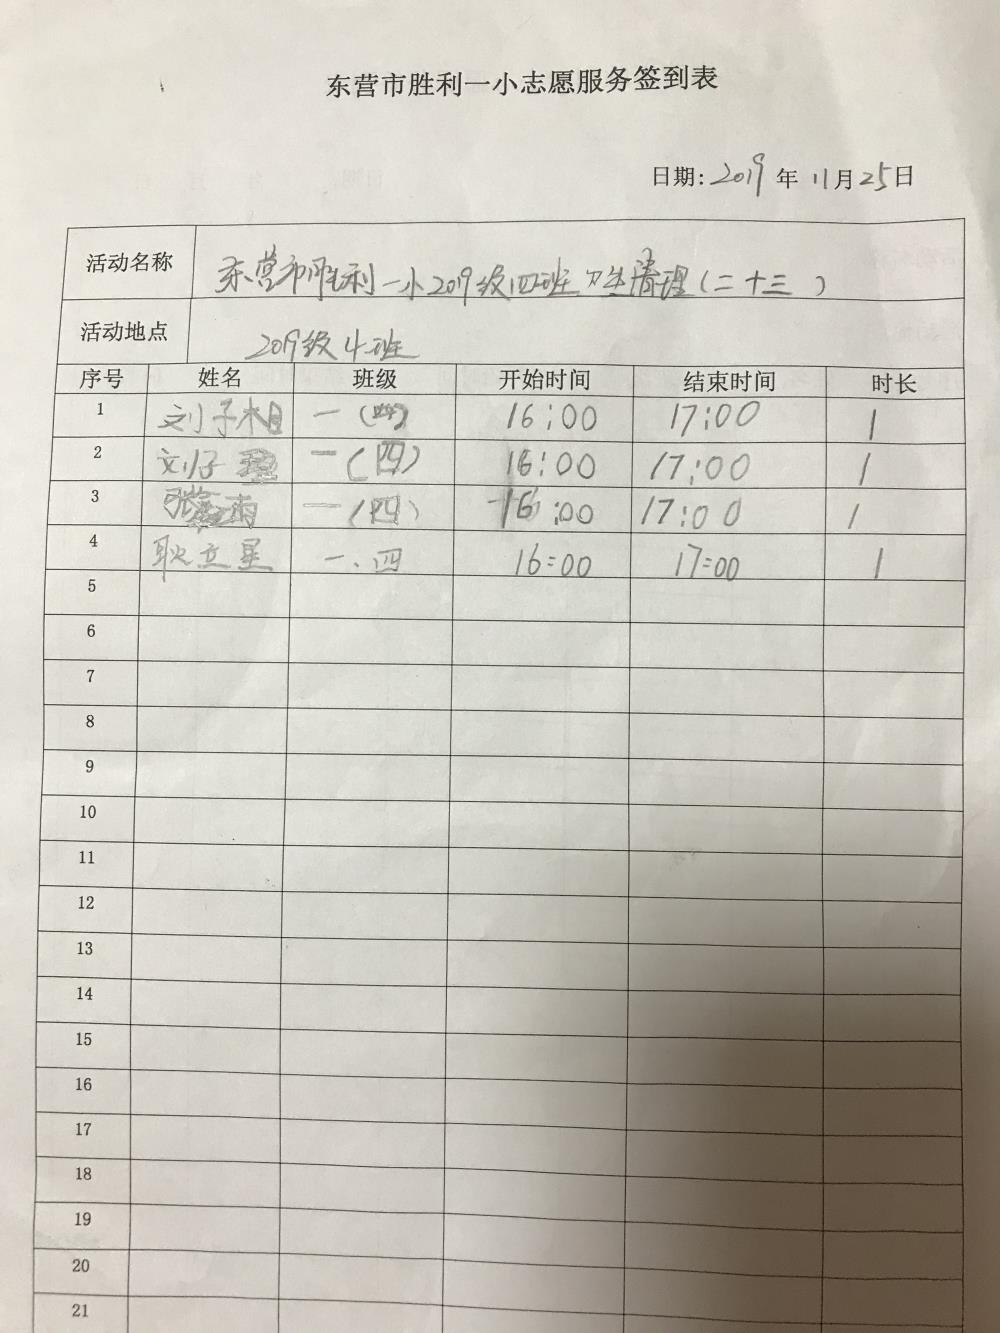 东营市胜利一小志愿服务签到表
日期: 2019 年 11 月 25 日
活动名称 东营市胜利一小2019级四班卫生清理(二十三)
活动地点 2019级4班
序号 姓名 班级 开始时间 结束时间 时长
1 刘子木目 一(四) 16:00 17:00 1
2 刘子 一(四) 16:00 17:00 1
3 张 雨 一(四) 16:00 17:00 1
4 耿立星 一、四 16:00 17:00 1
5
6
7
8
9
10
11
12
13
14
15
16
17
18
19
20
21